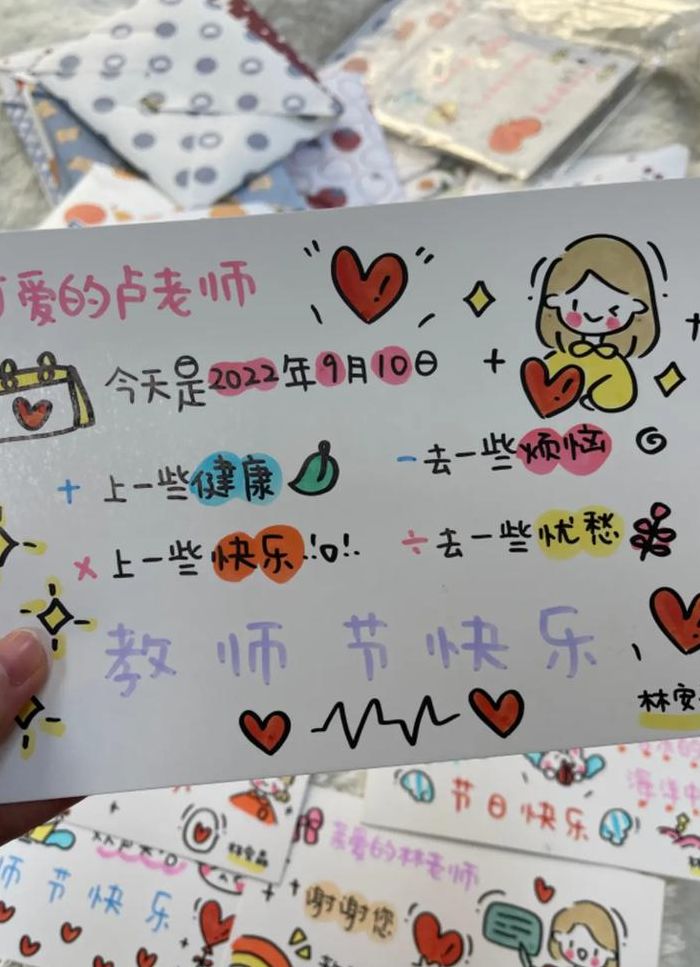 爱的卢老师
今天是2022年9月10日
+ 上一些健康
-去一些烦恼
× 上一些快乐
÷去一些忧愁
教师节快乐
林安
节日快乐
海洋中
师节快乐
亲爱的林老师
谢谢您